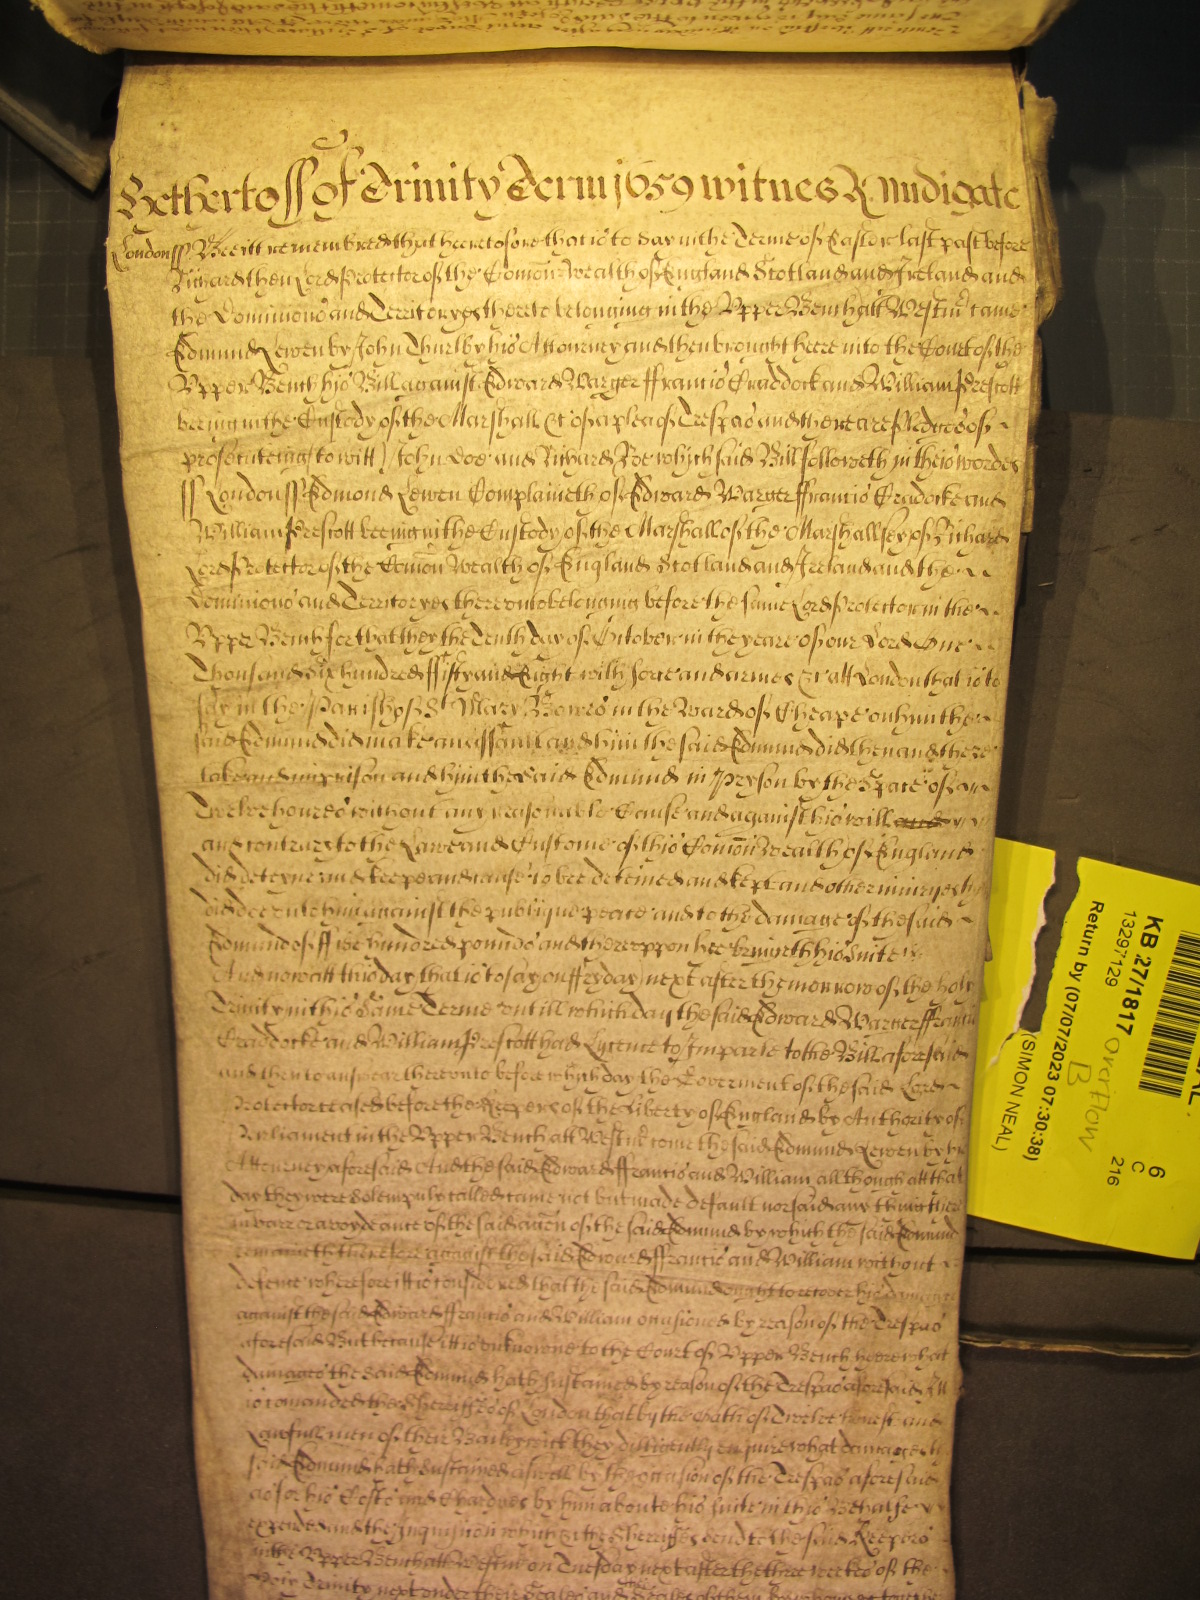 yet the rest of Trinity Term 1659 witnes R. Nudigate
London ss Bee itt remembred that heeretofore that is to say in the Terme of Easter last past before
Richard then Lord Protector of the Comon Wealth of England Scotland and Ireland and
the Dominions and Territoryes thereto belonging in the Upper Bench att Westmr came
Edmund Lewen by John Thurlby his Attourney and then brought heere into the Court of the
Upper Bench his Bill against Edward Warger ffrancis Craddock and William Prescott
beeing in the Custody of the Marshall &c of a plea of Trespas and there are Pledges of
prosecuteing (to witt) John Doe and Richard Roe which said Bill followeth in theis wordes
ss London ss Edmond Lewen Complaineth of Edward Warger ffrancis Cradocke and
William Prescott beeing in the Custody of the Marshall of the Marshallsey of Richard
Lord Protector of the Comon Wealth of England Scotland and Ireland and the
Dominions and Territoryes thereunto belonging before the same Lord Protector in the
Upper Bench for that they the Tenth day of October in the yeare of our Lord One
Thousand Six hundred ffifty and Eight with force and armes &c att London that is to
say in the Parish of St Mary Bowes in the Ward of Cheape on him the
said Edmund did make an assault and him the said Edmund did then and there
take and imprison and him the said Edmund in Pryson by the Space of
Twelve houres without any reasonable Cause and against his will and
and contrary to the Lawe and Custome of this Comon Wealth of England
did deteyne and keepe and cause to bee deteined and kept and other iniuryes
did doe unto him against the publique peace and to the damage of the said
Edmund of ffive hundred pounds and thereuppon hee bringeth his Suite
And now att this day that is to say on ffryday next after the morrow of the holy
Trinity in this same Terme untill which day the said Edward Warger ffrancis
Craddocke and William Prescott had Lycence to Imparle to the Bill aforesaid
and then to answear thereunto before which day the Goverment of the said Lord
Protector ceased before the Keepers of the Liberty of England by Authority of
Parliament in the Upper Bench att Westmr come the said Edmund Lewen by his
Attorney aforesaid And the said Edward ffrancis and William allthough att that
day they were solempnly called came not but made default nor said any thing there
in barr or avoydeance of the said accon of the said Edmund by which the said Edmund
remaineth therefore against the said Edward ffrancis and William without
defence wherefore itt is considered that the said Edmund ought to recover his damages
against the said Edward ffrancis and William occasioned by reason of the Trespas
aforesaid But because itt is unknowne to the Court of Upper Bench heere what
damages the said Edmund hath sustained by reason of the Trespas aforesaid Itt
is comanded the Sherriffes of London that by the Oath of Twelve honest and
Lawfull men of their Bailywick they dilligently enquire what damages the
said Edmund hath sustained aswell by the occasion of the Trespas aforesaid
as for his Costs and Chardges by him about his suite in this Behalfe
expended and the Inquisicon which &c the Sherriffes send to the said Keepers
in the Upper Bench att Westmr on Tuesday next after the three weekes of the
Holy Trinity next under their Seales and Seales of them
KB 27/1817 Overflow
B
13297129
Return by (07/07/2023 07:30:38)
(SIMON NEAL)
6
C
216